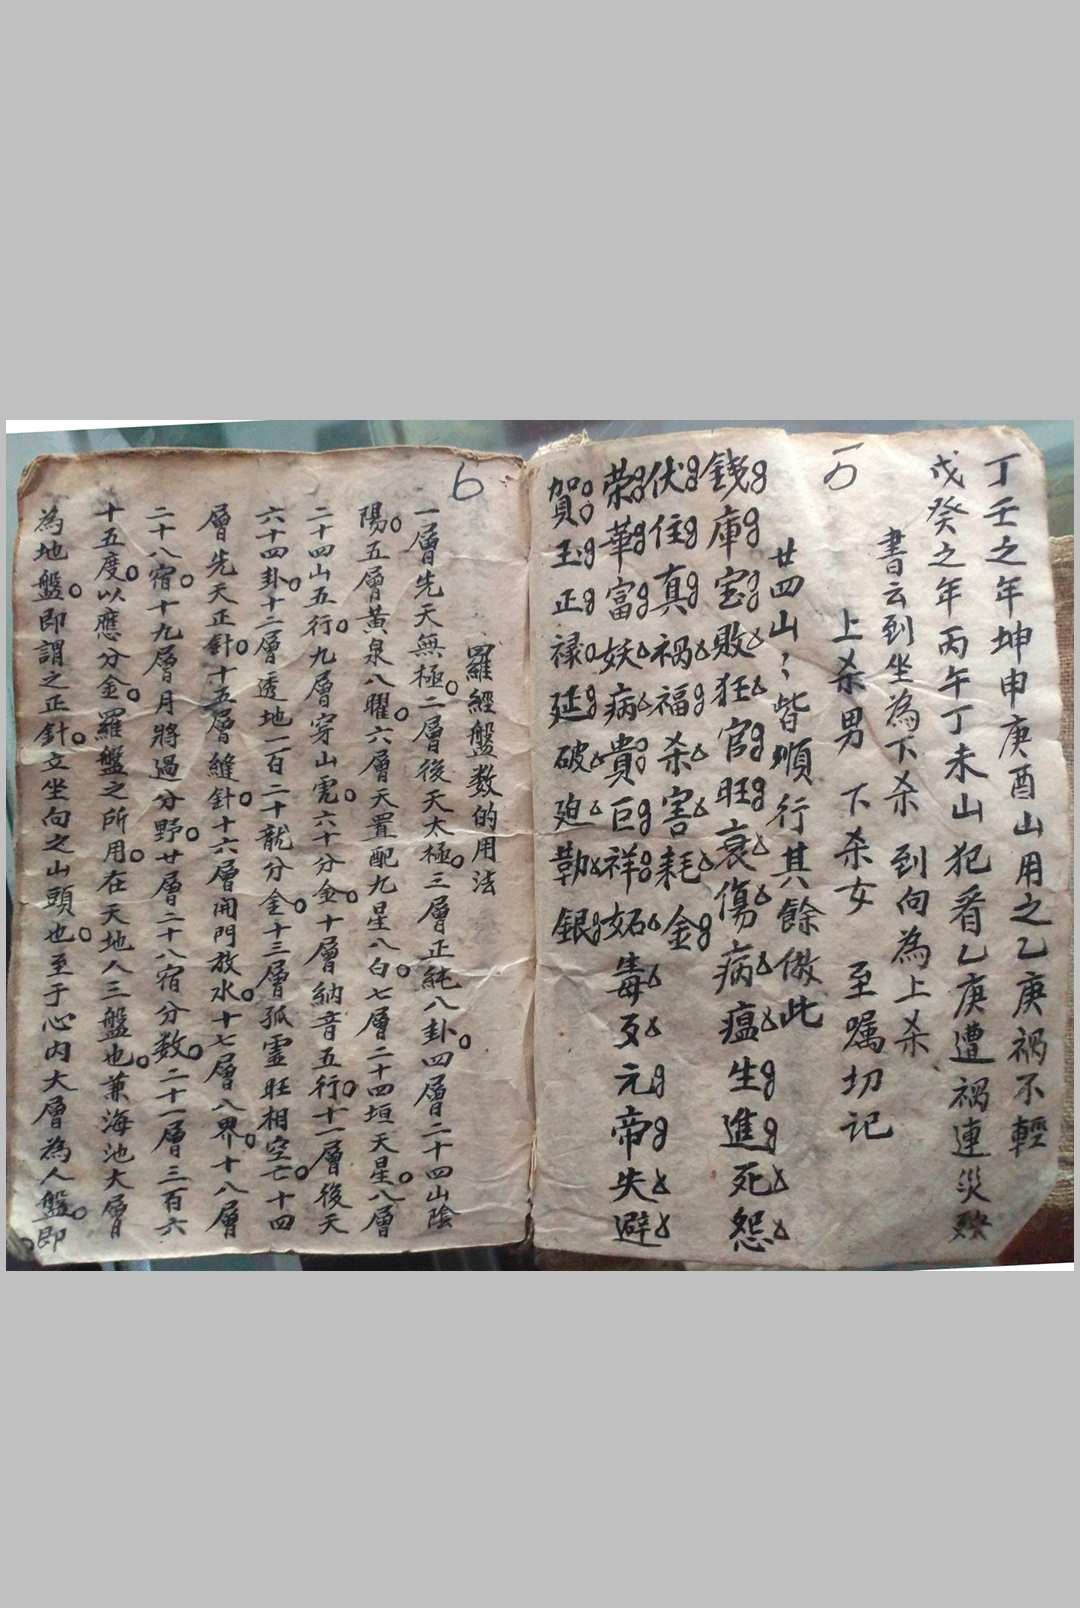 丁壬之年坤申庚酉山用之乙庚祸不輕
戊癸之年丙午丁未山犯看乙庚遭禍連災殃
書云到坐為下杀 到向為上杀
上杀男 下杀女 至嘱切记
5
廿四山〻皆順行其餘倣此
錢庫宝敗狂官旺衰傷病瘟生進死怨
伏住真祸福杀害耗金
荣華富妖病貴巨祥妬毒歹元帝失避
賀玉正禄延破廹勒銀
6
羅經盤数的用法
一層先天無極。二層後天太極。三層正純八卦。四層二十四山陰
陽。五層黃泉八曜。六層天置配九星八白。七層二十四垣天星。八層
二十四山五行。九層穿山虎六十分金。十層納音五行。十一層後天
六十四卦。十二層透地一百二十龍分金。十三層孤虛旺相空亡。十四
層先天正針。十五層縫針。十六層開門放水。十七層八界。十八層
二十八宿。十九層月將過分野。廿層二十八宿分数。二十一層三百六
十五度。以應分金。羅盤之所用。在天地人三盤也。兼海池大層
為地盤。即謂之正針。立坐向之山頭也。至于心内大層為人盤。即